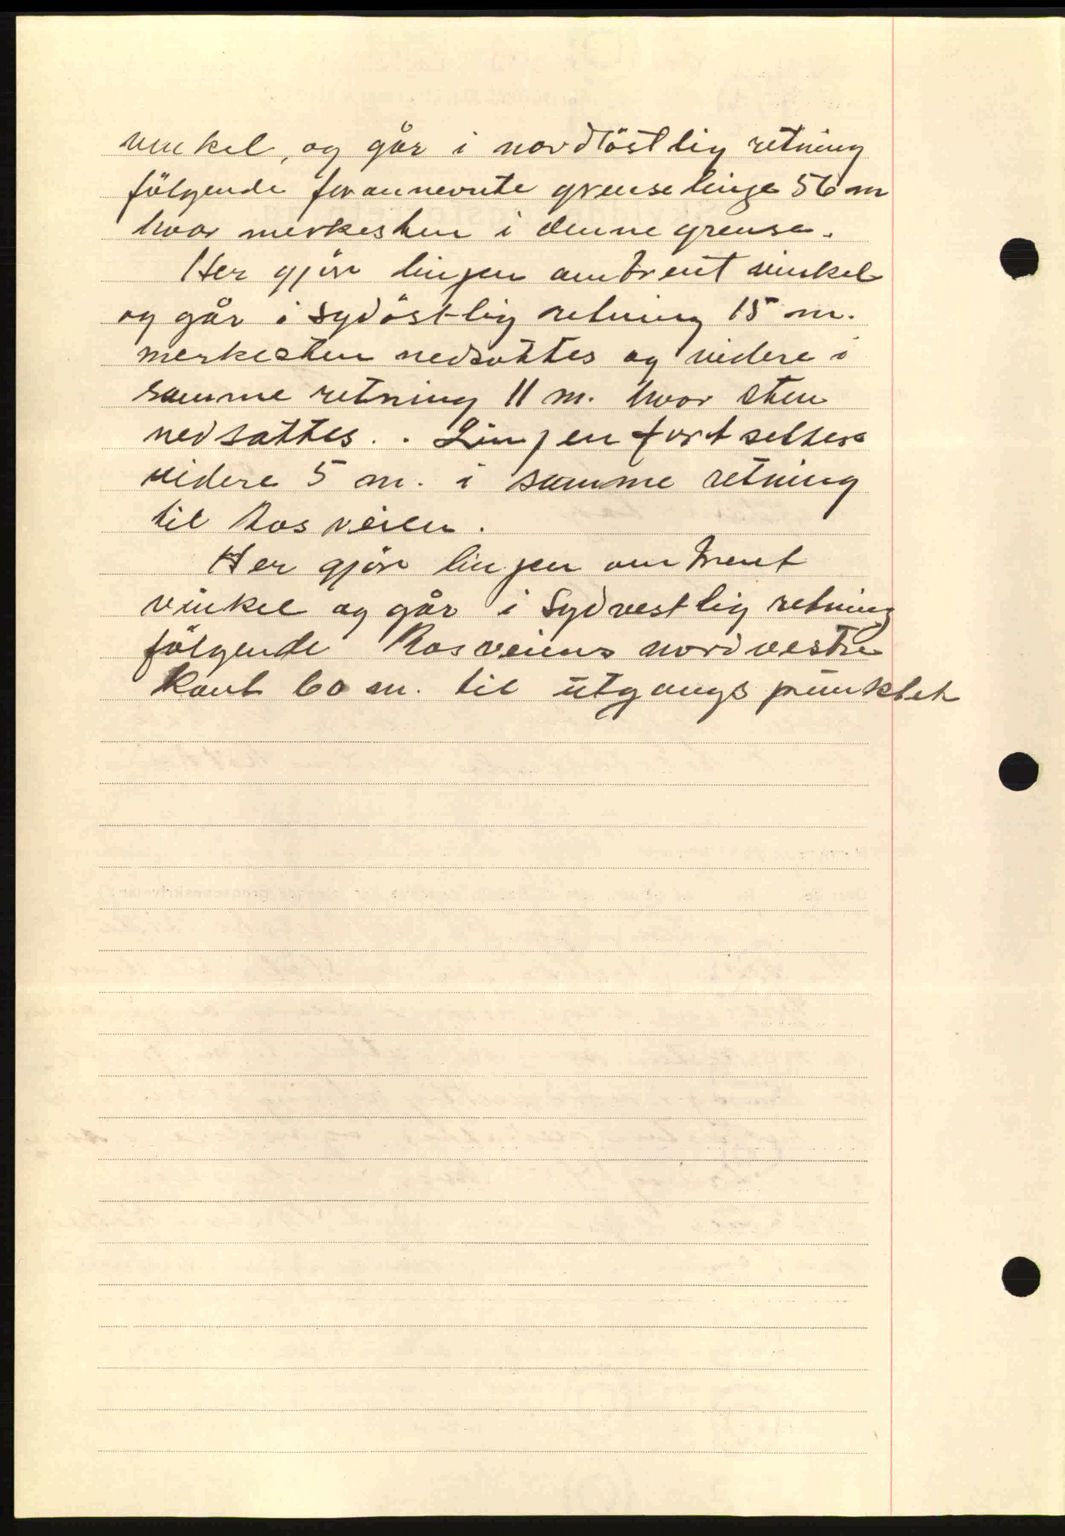 vinkel, og går i nordöstlig retning
fölgende forannevnte grenselinge 56 m
hvor merkesten i denne grense.
Her gjör linjen omtrent vinkel
og går i sydöstlig retning 15 m.
merkesten nedsattes og videre i
samme retning 11 m. hvor sten
nedsattes. . Linjen fortsetter
videre 5 m. i samme retning
til Rosveien.
Her gjör linjen omtrent
vinkel og går i Sydvestlig retning
fölgende Rosveiens nordvestre
Kant 60 m. til utgangspunktet